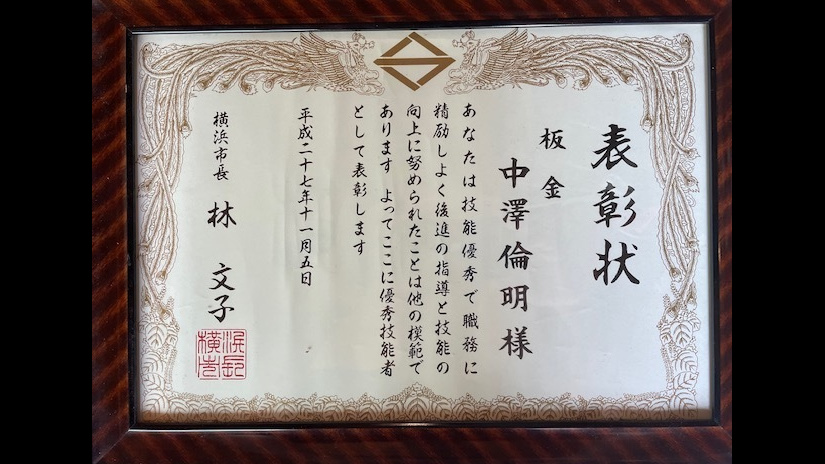 表彰状
板金
中澤倫明様
あなたは技能優秀で職務に
精励しよく後進の指導と技能の
向上に努められたことは他の模範で
あります よってここに優秀技能者
として表彰します
平成二十七年十一月五日
横浜市長 林 文子